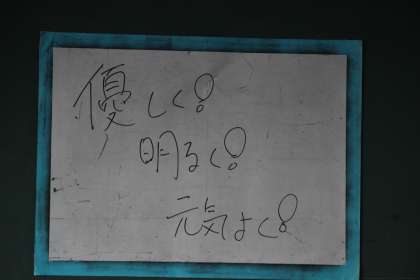 優しく!
明るく!
元気よく!